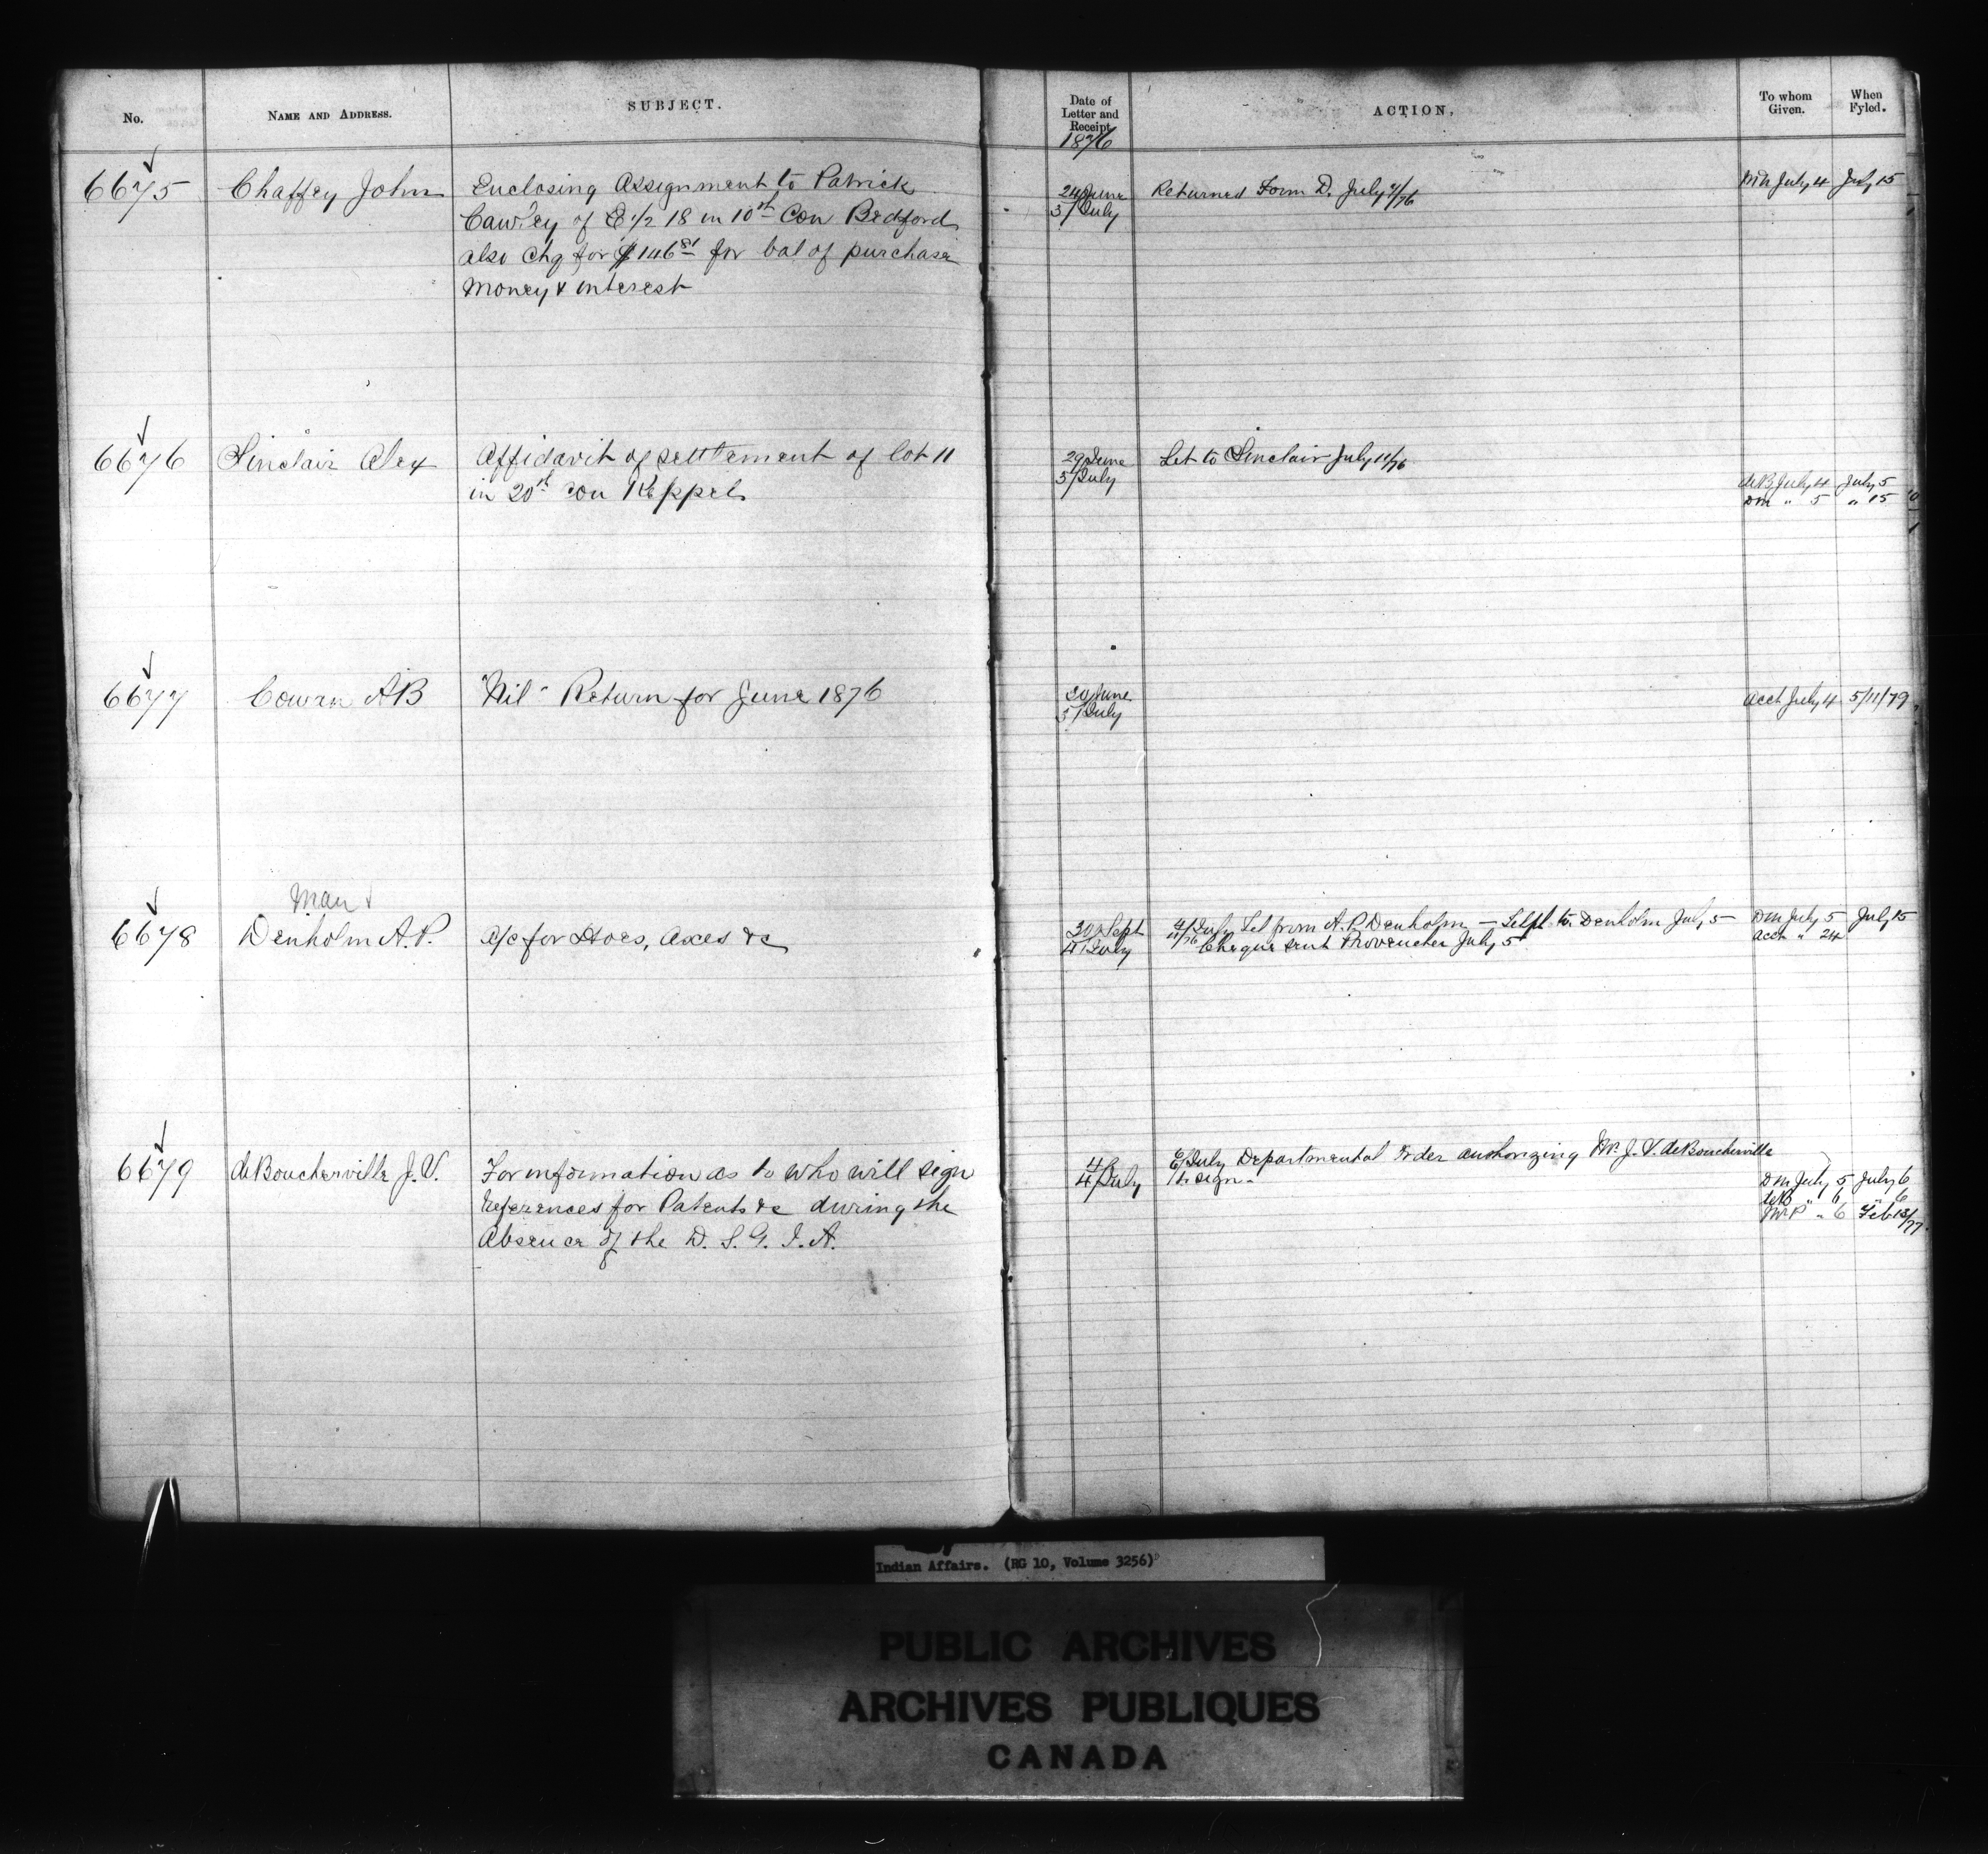 No.
NAME AND ADDRESS.
SUBJECT.
Date of
Letter and
Receipt
1876
ACTION.
To whom
Given.
When
Fyled.
6675
Chaffey John
Enclosing Assignment to Patrick
Cawley of E 1/2 18 in 10th Con Bedford
also chq for $146 81 for bal of purchase
money & interest
24 June
3/July
Returned Form D. July
July 4
July 15
6676
Sinclair Alex
Affidavit of settlement of lot 11
in 20th Con Keppel
29 June
3/July
Let to Sinclair July 11/76
deB July 4
July 5
DM " 5
" 15
6677
Cowan AB
"Nil" Return for June 1876
30 June
3/July
Acct July 4
5/11/79
6678
Man
Denholm A.P.
a/c for Hoes, Axes &c
30 Sept
4/July
4/July Let from A.P. Denholm — to Denholm July 5
Cheque sent Provencher July 5
DM July 5
July 15
Acct " 24
6679
deBoucherville J.V.
For information as to who will sign
References for Patents &c during the
Absence of the D. S. G. I. A.
4/July
July Departmental Order authorizing Mr. J. V. deBoucherville
to sign.
DM July 5
July 6
deB " 6
" 6
" 6
Feb 13/77
Indian Affairs. (RG 10, Volume 3256)
PUBLIC ARCHIVES
ARCHIVES PUBLIQUES
CANADA